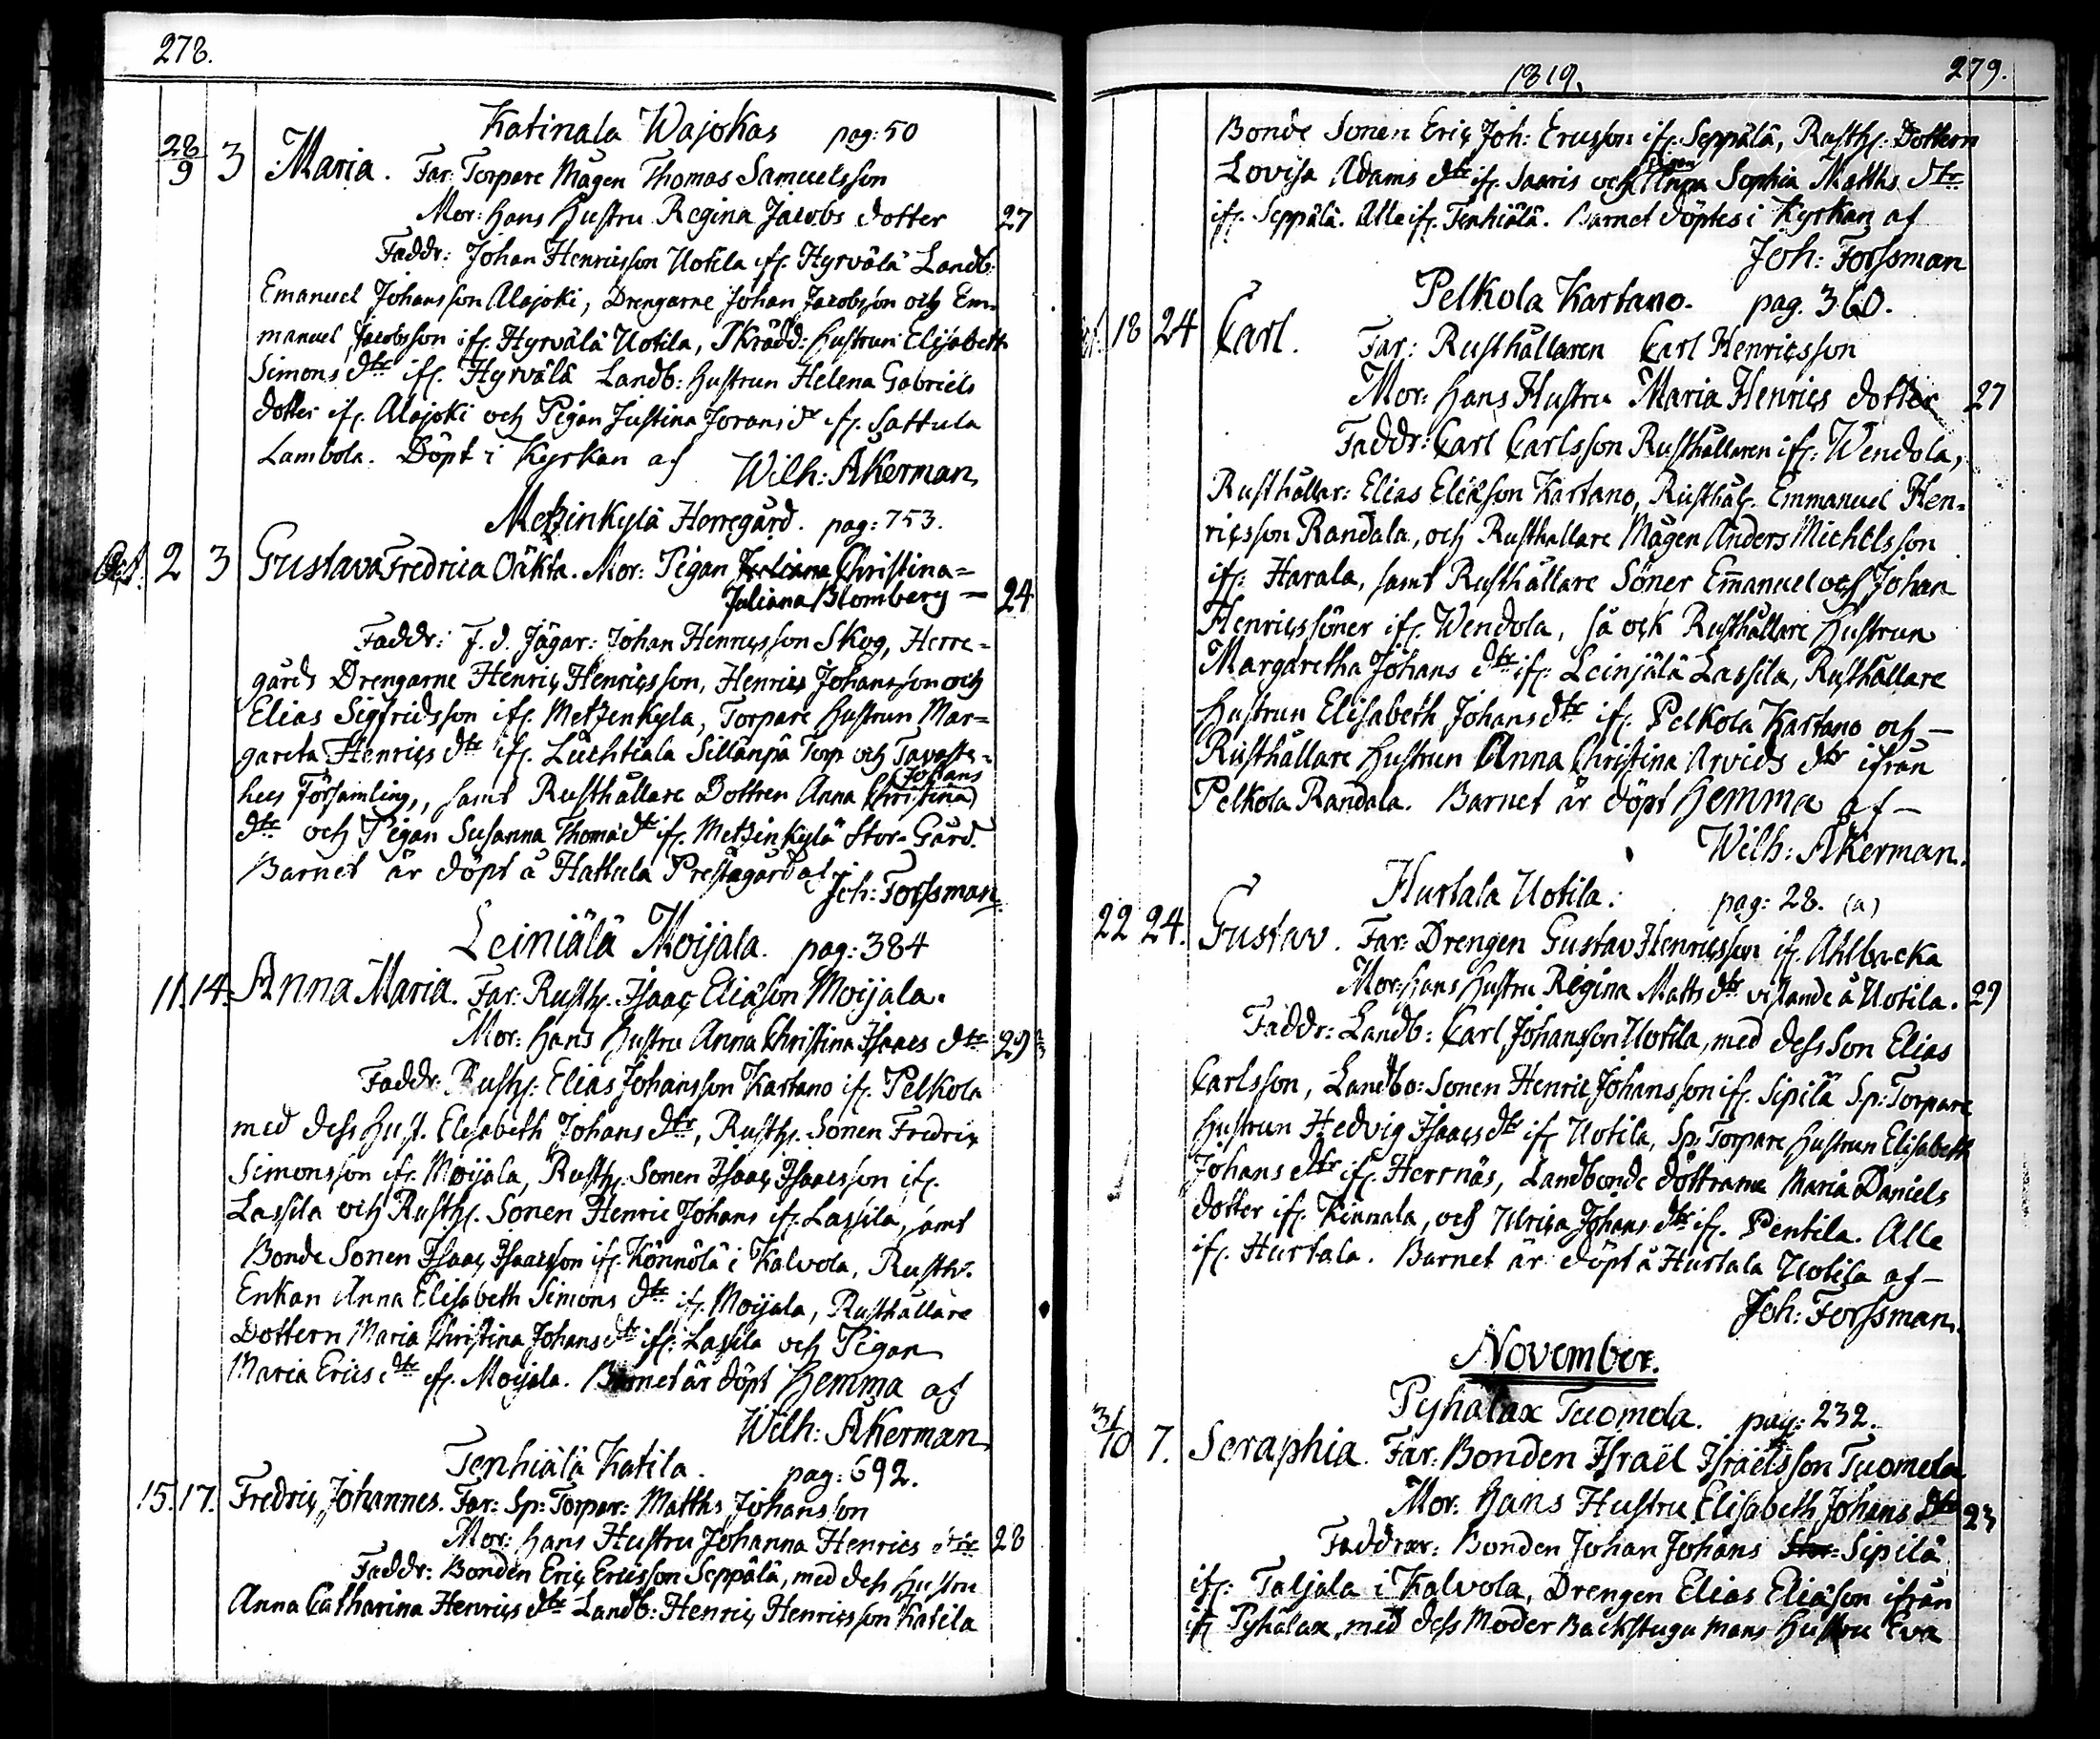 278.
Katinala Wajokas pag: 50
28/9 3 Maria. Far: Torpare Mågen Thomas Samuelsson
Mor: Hans Hustru Regina Jacobs dotter 27
Faddr: Johan Henricsson Uotila ifr. Hyrvälä Landb:
Emanuel Johansson Alajoki, Drengarne Johan Jacobsson och Em-
manuel Jacobsson ifr. Hyrvälä Uotila, Skrädd: Hustrun Elisabeth
Simons dtr ifr. Hyrvälä Landb: Hustrun Helena Gabriels
dotter ifr. Alajoki och Pigan Justina Jorans dr ifr. Sattula
Lambola. Döpt i Kyrkan af Wilh: Åkerman
Metzinkylä Herregård. pag: 753.
Oct. 2 3 Gustava Fredrica Oäkta. Mor: Pigan Juliana Christina=
Juliana Blomberg — 24
Faddr: F. d. Jägar: Johan Henricsson Skog, Herre-
gårds Drengarne Henric Henricsson, Henric Johansson och
Elias Sigfridsson ifr. Metzenkyla, Torpare Hustrun Mar=
gareta Henrics dtr ifr. Luchtiala Sillänpä Torp och Tavaste-
hus Församling,, samt Rusthållare Dottren Anna Christina Johans
dtr och Pigan Susanna Thomædtr ifr. Metzinkylä Stor-Gård.
Barnet är döpt å Hattula Prestagård af
Joh: Forssman
Leiniälä Moijala. pag: 384
11. 14. Anna Maria. Far: Rusth. Isaac Eliasson Moijala.
Mor: Hans Hustru Anna Christina Isaacs dtr 29
Faddr: Rusth: Elias Johansson Kartano ifr. Pelkola
med dess Hust. Elisabeth Johans dtr, Rusth. Sonen Fredric
Simonsson ifr. Moijala, Rusth. Sonen Isaac Isaacsson ifr.
Lassila och Rusth. Sonen Henric Johans ifr. Lassila, samt
Bonde Sonen Isaac Isaacsson ifr. Könnölä i Kalvola, Rusth.
Enkan Anna Elisabeth Simons dtr ifr. Moijala, Rusthållare
Dottern Maria Christina Johans dtr ifr. Lassila och Pigan
Maria Erics dtr ifr. Moijala. Barnet är döpt Hemma af
Wilh: Åkerman
Tenhiälä Katila. pag: 692.
15. 17. Fredric Johannes. Far: Sp: Torpar: Matths Johansson
Mor: Hans Hustru Johanna Henrics dtr 28
Faddr: Bonden Eric Ericsson Seppälä, med dess Hustru
Anna Catharina Henrics dtr Landb: Henric Henricsson Katila
1819. 279.
Bonde Sonen Eric Joh: Ericsson ifr. Seppälä, Rusth: Dottern
Lovisa Adams dtr ifr. Saaris och Pigan Anna Sophia Matths dtr
ifr. Seppälä. Alle ifr. Tenhiälä. Barnet döptes i Kyrkan af
Joh: Forssman
Pelkola Kartano. pag. 360.
18 24 Carl. Far: Rusthållaren Carl Henricsson
Mor: Hans Hustru Maria Henrics dotter 27
Faddr: Carl Carlsson Rusthållaren ifr. Wendola,
Rusthållar: Elias Eliasson Kartano, Rusthålr. Emmanuel Hen-
ricsson Randala, och Rusthållare Mågen Anders Michelsson
ifr. Harala, samt Rusthållare Söner Emanuel och Johan
Henricssöner ifr. Wendola, så ock Rusthållare Hustrun
Margaretha Johans dtr ifr. Leinjälä Lassila, Rusthållare
Hustrun Elisabeth Johans dtr ifr. Pelkola Kartano och —
Rusthållare Hustrun Anna Christina Arvids dtr ifrån
Pelkola Randala. Barnet är döpt Hemma af —
Wilh: Åkerman.
Hurtala Uotila: pag: 28. (a)
22 24. Gustav. Far: Drengen Gustav Henricsson ifr. Ahlbacka
Mor: Hans Hustru Regina Matts dtr vistande å Uotila. 29
Faddr: Landb: Carl Johansson Uotila, med dess Son Elias
Carlsson, Landbo: Sonen Henric Johansson ifr. Sipilä Sp: Torpare
Hustrun Hedvig Isaacs dtr ifr Uotila, Sp: Torpare Hustrun Elisabeth
Johans dtr ifr. Herrnäs, Landbonde döttrarne Maria Daniels
dotter ifr. Kinnala, och Ulrica Johans dtr ifr. Pentila. Alle
ifr. Hurtala. Barnet är döpt å Hurtala Uotila af —
Joh: Forssman.
November.
Pyhälax Tuomola. pag: 232.
31/10 7. Seraphia. Far: Bonden Israël Israëlsson Tuomola
Mor: Hans Hustru Elisabeth Johans dtr 23
Faddrar: Bonden Johan Johans Sipilä
ifr: Taljala i Kalvola, Drengen Elias Eliasson ifrån
ifr Pyhälax, med dess Moder Backstugu Mans Hustru Eva